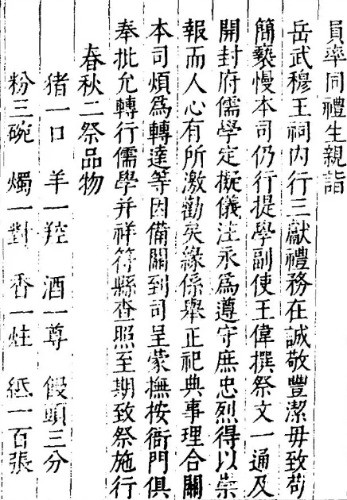 員率同禮生親詣
岳武穆王祠内行三獻禮務在誠敬豐潔毋致茍
簡褻慢本司仍行提學副使王偉撰祭文一通及
開封府儒學定擬儀注永爲遵守庶忠烈得以崇
報而人心有所激勸矣緣係舉正祀典事理合關
本司煩爲轉達等因備關到司呈蒙撫按衙門俱
奉批允轉行儒學并祥符縣查照至期致祭施行
春秋二祭品物
猪一口　羊一羫　酒一尊　饅頭三分
粉三碗　燭一對　香一炷　紙一百張